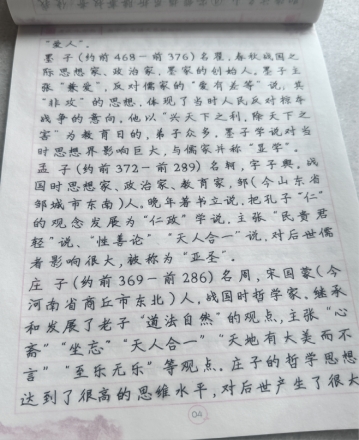 "爱人"。
墨子(约前468-前376)名翟,春秋战国之
际思想家、政治家,墨家的创始人,墨子主
张"兼爱",反对儒家的"爱有差等"说,其
"非攻"的思想,体现了当时人民反对掠夺
战争的意向,他以"兴天下之利,除天下之
害"为教育目的,弟子众多,墨子学说对当
时思想界影响巨大,与儒家并称"显学"。
孟子(约前372-前289)名轲,字子舆,战
国时思想家、政治家、教育家,邹(今山东省
邹城市东南)人,晚年著书立说,把孔子"仁"
的观念发展为"仁政"学说,主张"民贵君
轻"说、"性善论""天人合一"说,对后世儒
者影响很大,被称为"亚圣"。
庄子(约前369-前286)名周,宋国蒙(今
河南省商丘市东北)人,战国时哲学家,继承
和发展了老子"道法自然"的观点,主张"心
斋""坐忘""天人合一""天地有大美而不
言""至乐无乐"等观点。庄子的哲学思想
达到了很高的思维水平,对后世产生了很大
04